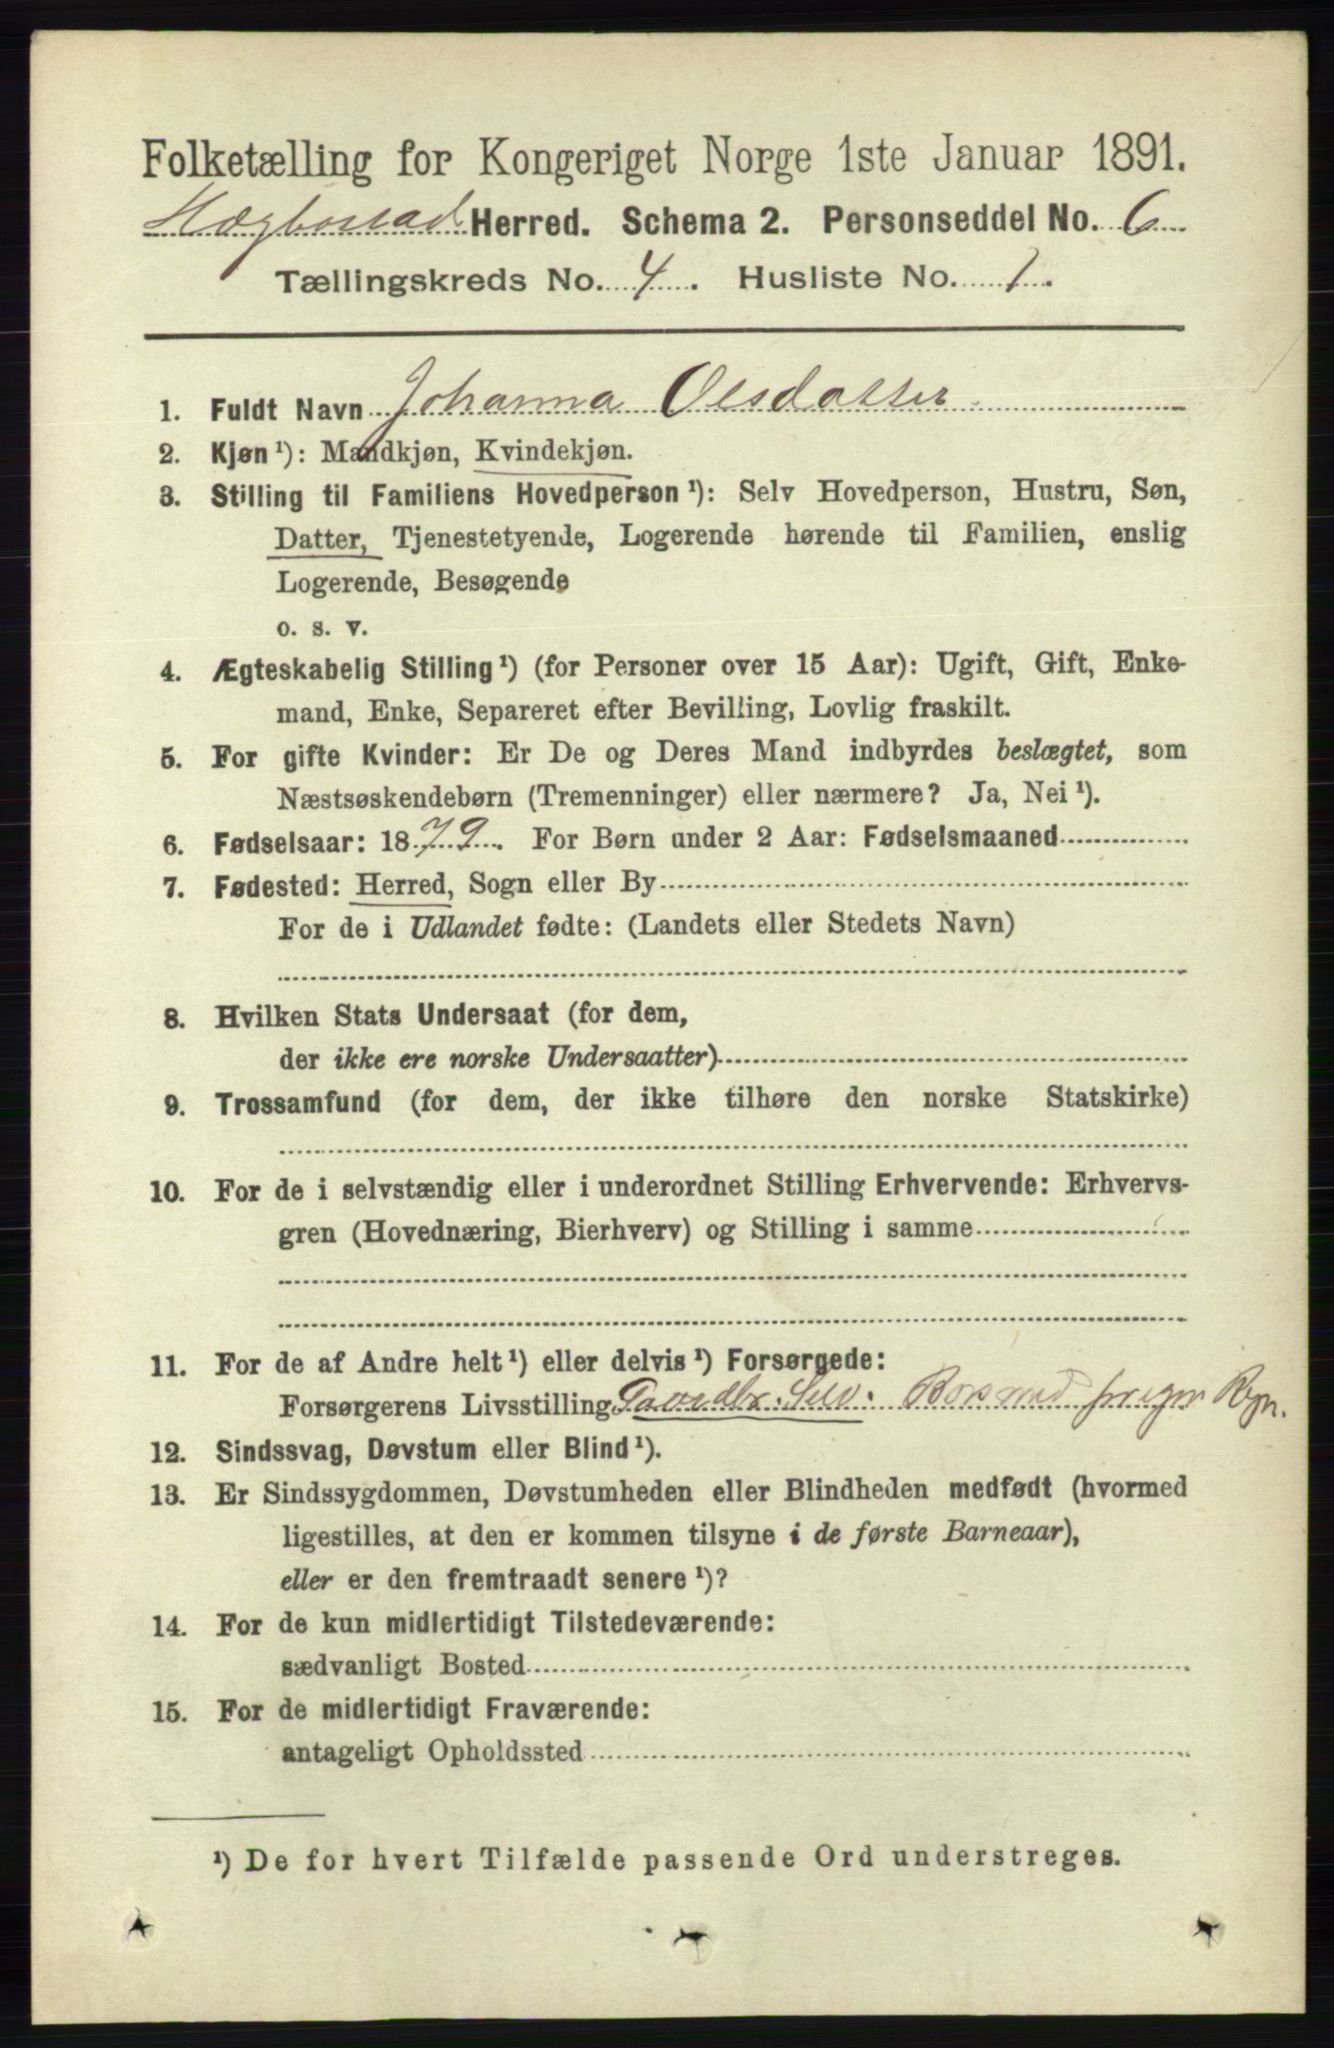 Folketælling for Kongeriget Norge 1ste Januar 1891.
Hægbostad Herred. Schema 2. Personseddel No. 6
Tællingskreds No. 4. Husliste No. 1.
1. Fuldt Navn Johanna Olsdatter
2. Kjøn ¹): Mandkjøn, Kvindekjøn.
3. Stilling til Familiens Hovedperson ¹): Selv Hovedperson, Hustru, Søn,
Datter, Tjenestetyende, Logerende hørende til Familien, enslig
Logerende, Besøgende
o. s. v.
4. Ægteskabelig Stilling ¹) (for Personer over 15 Aar): Ugift, Gift, Enke-
mand, Enke, Separeret efter Bevilling, Lovlig fraskilt.
5. For gifte Kvinder: Er De og Deres Mand indbyrdes beslægtet, som
Næstsøskendebørn (Tremenninger) eller nærmere? Ja, Nei ¹).
6. Fødselsaar: 1879. For Børn under 2 Aar: Fødselsmaaned
7. Fødested: Herred, Sogn eller By
For de i Udlandet fødte: (Landets eller Stedets Navn)
8. Hvilken Stats Undersaat (for dem,
der ikke ere norske Undersaatter)
9. Trossamfund (for dem, der ikke tilhøre den norske Statskirke)
10. For de i selvstændig eller i underordnet Stilling Erhvervende: Erhvervs-
gren (Hovednæring, Bierhverv) og Stilling i samme
11. For de af Andre helt ¹) eller delvis ¹) Forsørgede:
Forsørgerens Livsstilling Gaardbr. Selv.
12. Sindssvag, Døvstum eller Blind ¹).
13. Er Sindssygdommen, Døvstumheden eller Blindheden medfødt (hvormed
ligestilles, at den er kommen tilsyne i de første Barneaar),
eller er den fremtraadt senere ¹)?
14. For de kun midlertidigt Tilstedeværende:
sædvanligt Bosted
15. For de midlertidigt Fraværende:
antageligt Opholdssted
¹) De for hvert Tilfælde passende Ord understreges.